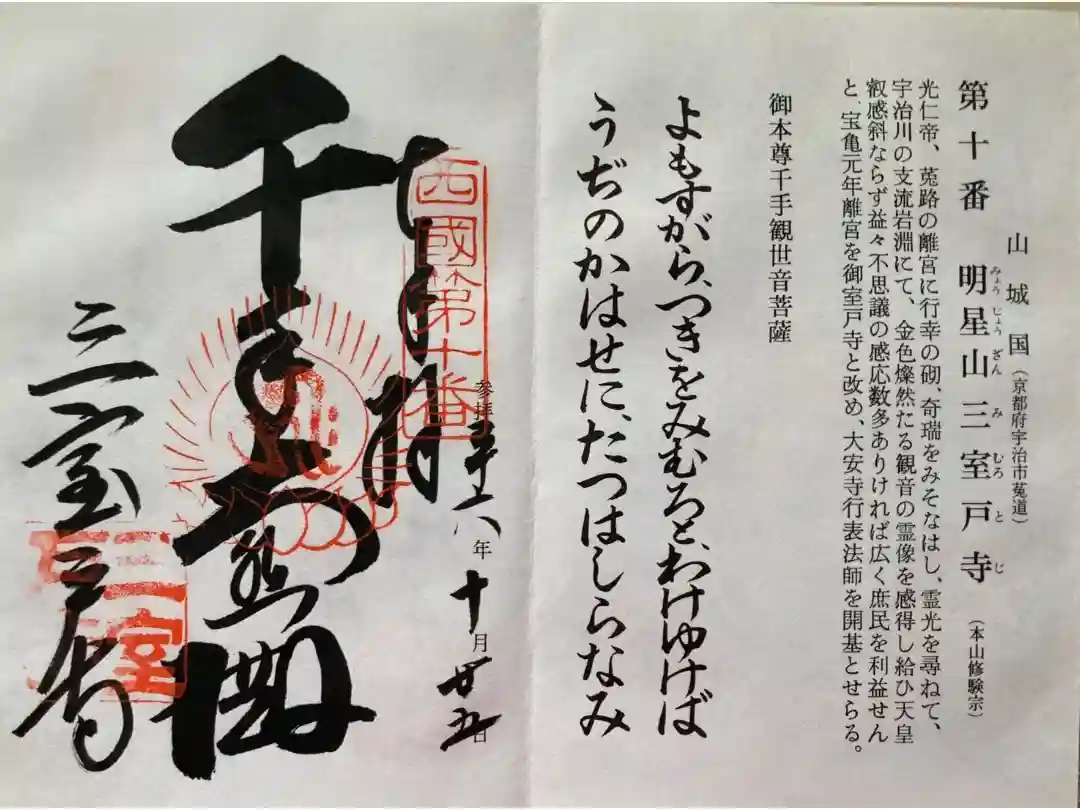 山城国（京都府宇治市菟道）
第十番 明星山三室戸寺（本山修験宗）
みょうじょうざんみむろとじ
光仁帝、菟路の離宮に行幸の砌、奇瑞をみそなはし、霊光を尋ねて、
宇治川の支流岩淵にて、金色燦然たる観音の霊像を感得し給ひ天皇
叡感斜ならず益々不思議の感応数多ありければ広く庶民を利益せん
と、宝亀元年離宮を御室戸寺と改め、大安寺行表法師を開基とせらる。
御本尊千手観世音菩薩
よもすがら、つきをみむろと、わけゆけば
うぢのかはせに、たつはしらなみ
西國第十番
参拝
年十月廿五日
千手
三室戸寺